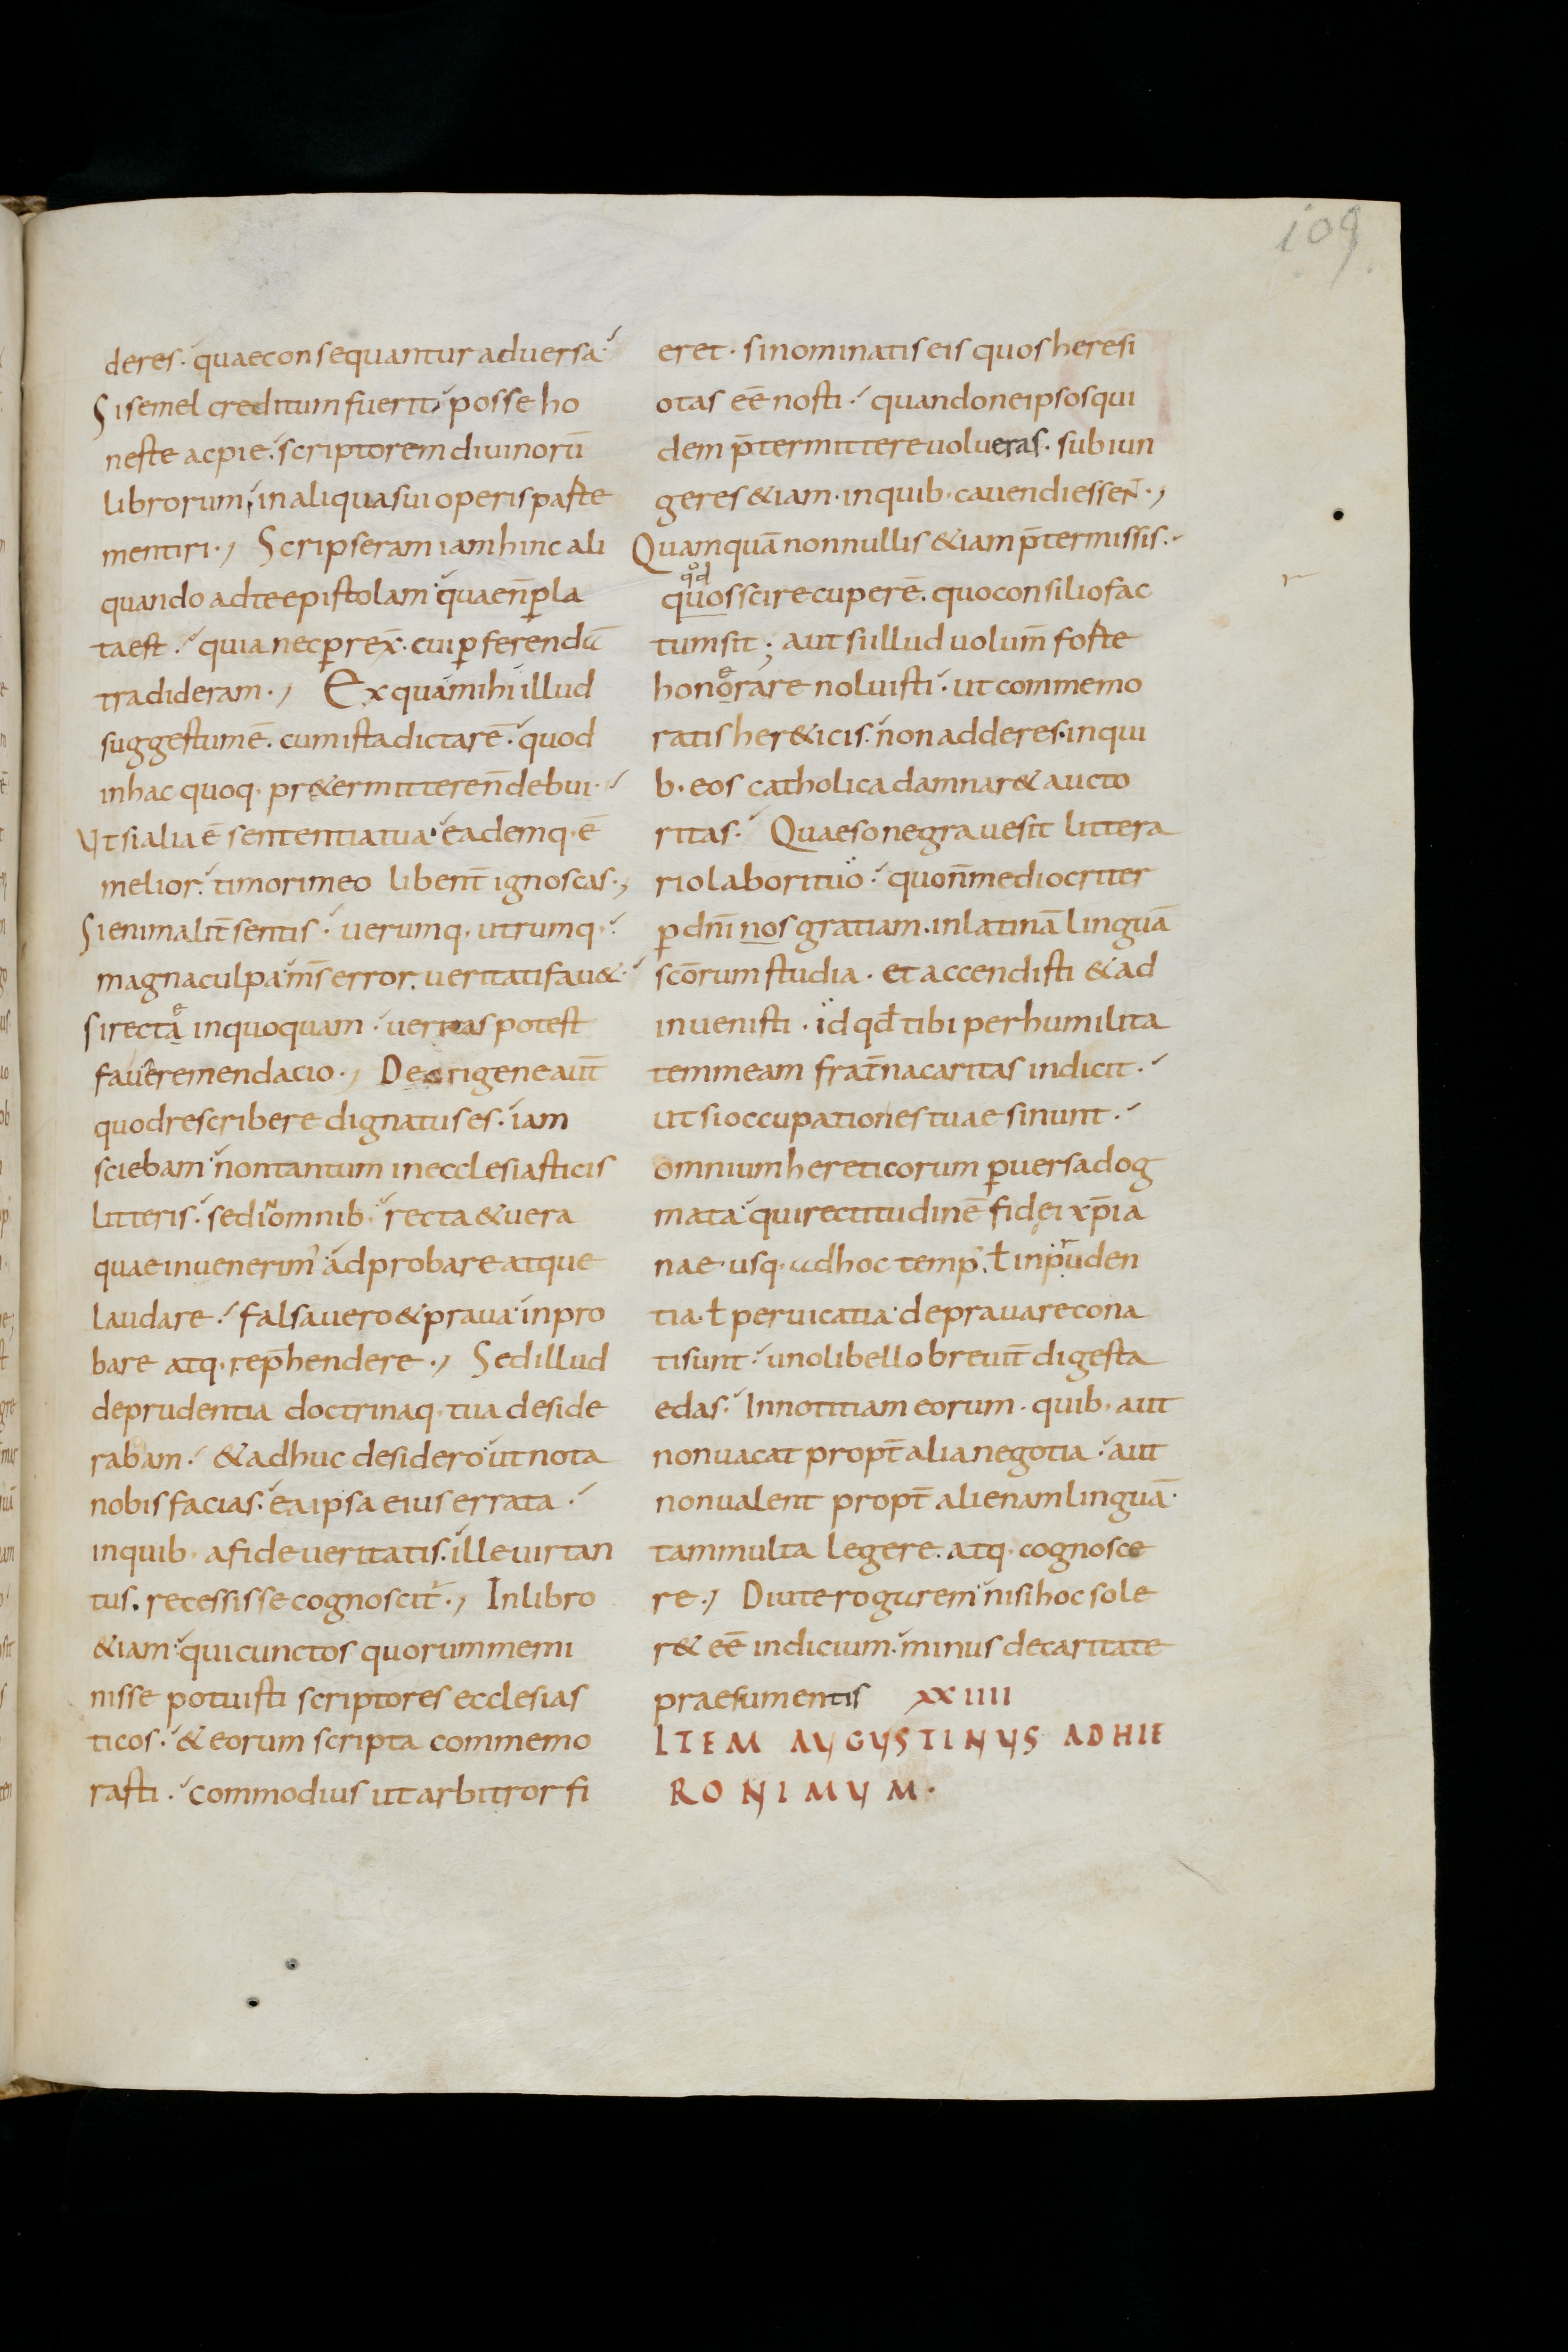 109
deres. quaeconsequantur aduersa.
Sisemel creditum fuerit posse ho
neste acpie. scriptorem diuinorū
librorum, inaliquasui operis parte
mentiri., Scripseram iamhinc ali
quando adteepistolam quaen̄ p̱la
taest. quia necp̱rex̄. cui p̱ferendū
tradideram., Exquamihi illud
suggestumē. cumistadictarē. quod
inhac quoq. pr&ermitteren̄debui.
Vtsialia ē sententiatua. eademq. ē
melior. timorimeo libent̄ ignoscas.,
Sienimalit̄sentis. uerumq. utrumq.
magnaculpa m̄s error. ueritatifau&.
sirecta inquoquam. ueritas potest
fauere mendacio., Deorigene aut̄
quodrescribere dignatus es. iam
sciebam nontantum inecclesiasticis
litteris. sedinomnib. recta & uera
quaeinuenerim' adprobare atque
laudare. falsauero & praua inpro
bare atq. rep̄hendere., Sedillud
deprudentia doctrinaq. tua deside
rabam. & adhuc desidero ut nota
nobis facias. eaipsa eius errata.
inquib. afide ueritatis. ille uir tan
tus. recessisse cognoscit'., Inlibro
&iam. quicunctos quorummemi
nisse potuisti scriptores ecclesias
ticos. & eorum scripta commemo
rasti. commodius ut arbitror fi
eret. sinominatis eis quos heresi
otas eē nosti. quandoneipsosqui
dem p̄termittere uolueras. subiun
geres &iam. inquib. cauendi essent.,
Quamquā nonnullis &iam p̄termissis.
qd
quos scire cuperē. quoconsiliofac
tumsit; aut siillud uolum̄ forte
honorare noluisti. ut commemo
ratis her&icis. non adderes. inqui
b. eos catholica damnar& aucto
ritas. Quaeso negrauesit littera
rio labori tuo. quon̄ mediocriter
p̱ dn̄i nos gratiam. inlatinā linguā
sc̄orum studia. et accendisti & ad
inuenisti. id qd̄ tibi per humilita
temmeam frat̄na caritas indicit.
ut si occupationes tuae sinunt.
omnium hereticorum p̱uersa dog
mata. quirectitudinē fidei xp̄ia
nae. usq. adhoc temp'. ł inpruden
tia. ł peruicatia. deprauare cona
tisunt. unolibello breuit̄ digesta
edas. Innotitiam eorum. quib. aut
nonuacat propt̄ alia negotia. aut
nonualent propt̄ alienam linguā.
tammulta legere. atq. cognosce
re., Diute rogarem nisi hoc sole
r& eē indicium. minus decaritate
praesumentis XXIIII
ITEM AVGVSTINVS AD HIE
RONIMVM.